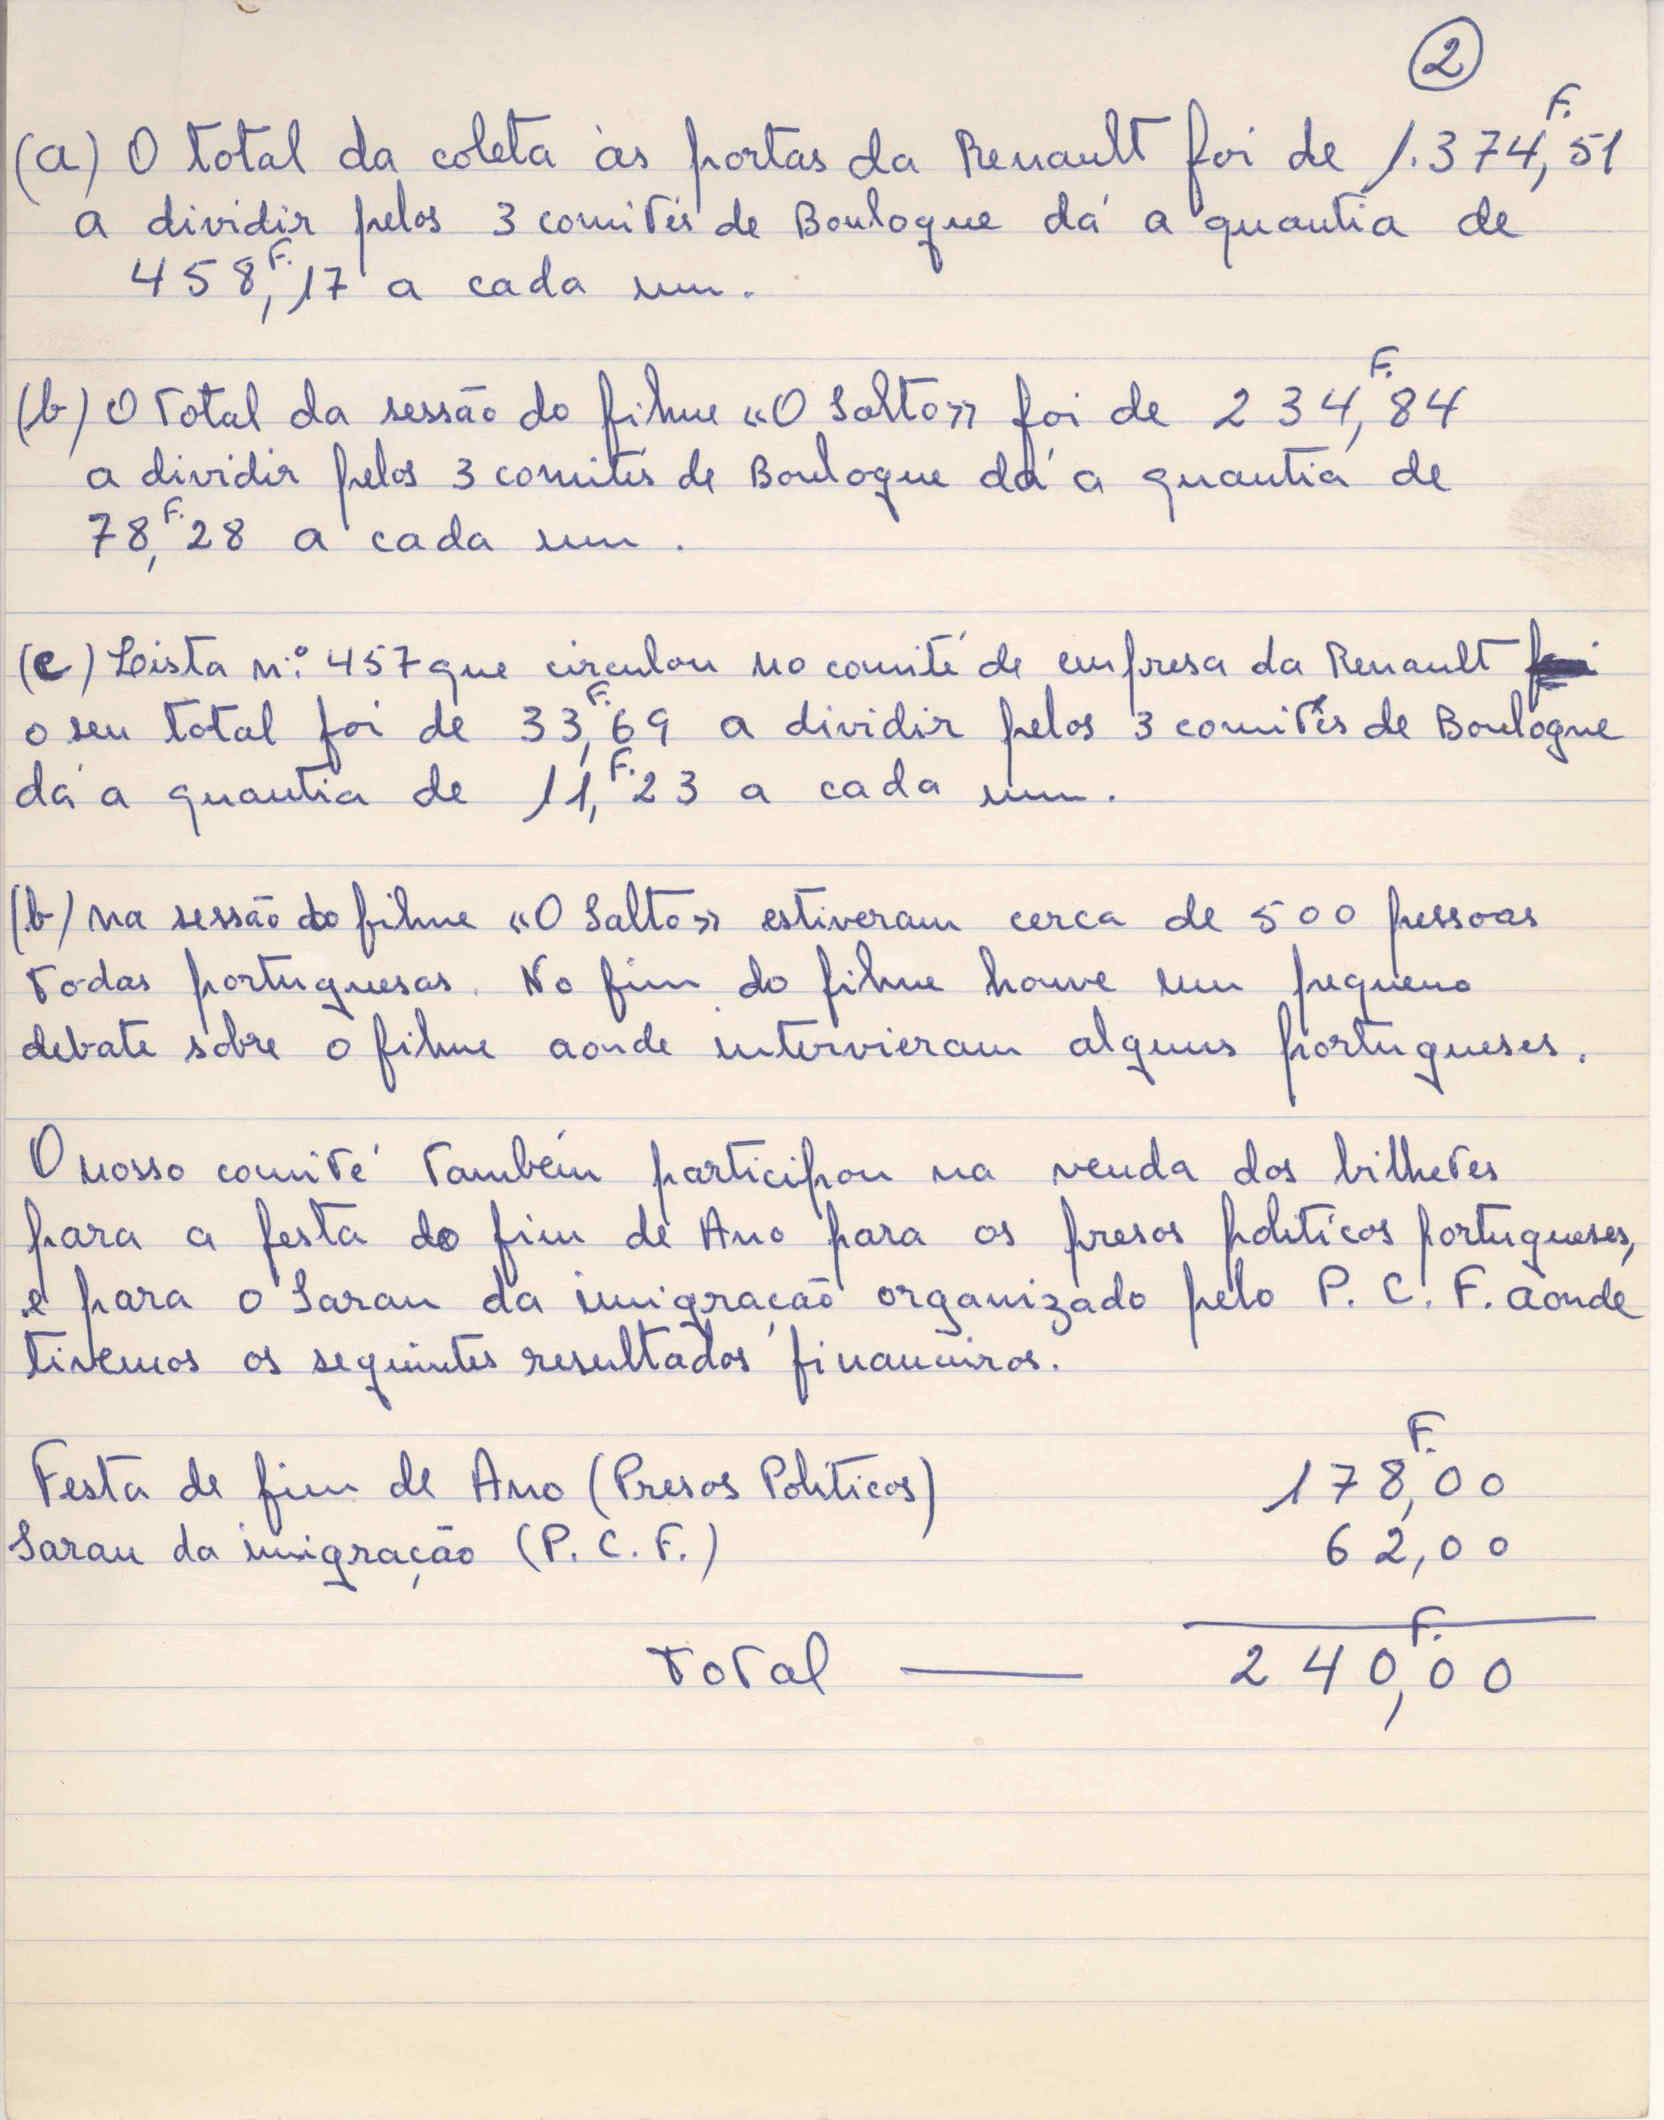 2
(a) O total da coleta às portas da Renault foi de 1.374,F.51
a dividir pelos 3 comités de Boulogne dá a quantia de
458,F.17 a cada um.
(b) O total da sessão do filme «O Salto» foi de 234,F.84
a dividir pelos 3 comités de Boulogne dá a quantia de
78,F.28 a cada um.
(c) Lista n.º 457 que circulou no comité de empresa da Renault
o seu total foi de 33,F.69 a dividir pelos 3 comités de Boulogne
dá a quantia de 11,F.23 a cada um.
(b) na sessão do filme «O Salto» estiveram cerca de 500 pessoas
todas portuguesas. No fim do filme houve um pequeno
debate sobre o filme aonde intervieram alguns portugueses.
O nosso comité também participou na venda dos bilhetes
para a festa do fim de Ano para os presos políticos portugueses,
e para o Sarau da imigração organizado pelo P. C. F. aonde
tivemos os seguintes resultados financeiros.
Festa de fim de Ano (Presos Políticos) 178,F.00
Sarau da imigração (P. C. F.) 62,00
Total — 240,F.00